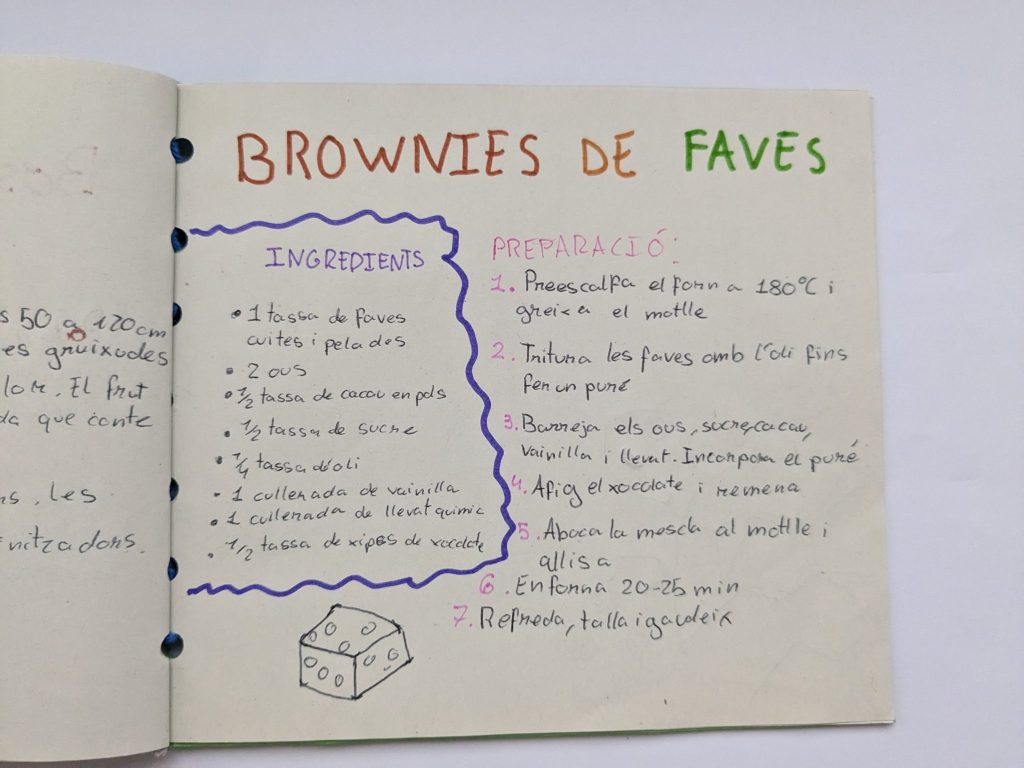 s 50 a 120cm
es gruixudes
lor. El fruit
da que conte
ns, les
nitzadors.
BROWNIES DE FAVES
INGREDIENTS
• 1 tassa de faves
cuites i pelades
• 2 ous
• 1/2 tassa de cacau en pols
• 1/2 tassa de sucre
• 1/4 tassa d'oli
• 1 cullerada de vainilla
• 1 cullerada de llevat químic
• 1/2 tassa de xips de xocolate
PREPARACIÓ:
1. Preescalfa el forn a 180ºC i
greixa el motlle
2. Tritura les faves amb l'oli fins
fer un puré
3. Barreja els ous, sucre, cacau,
vainilla i llevat. Incorpora el puré
4. Afig el xocolate i remena
5. Aboca la mescla al motlle i
allisa
6. Enforna 20-25 min
7. Refreda, talla i gaudeix